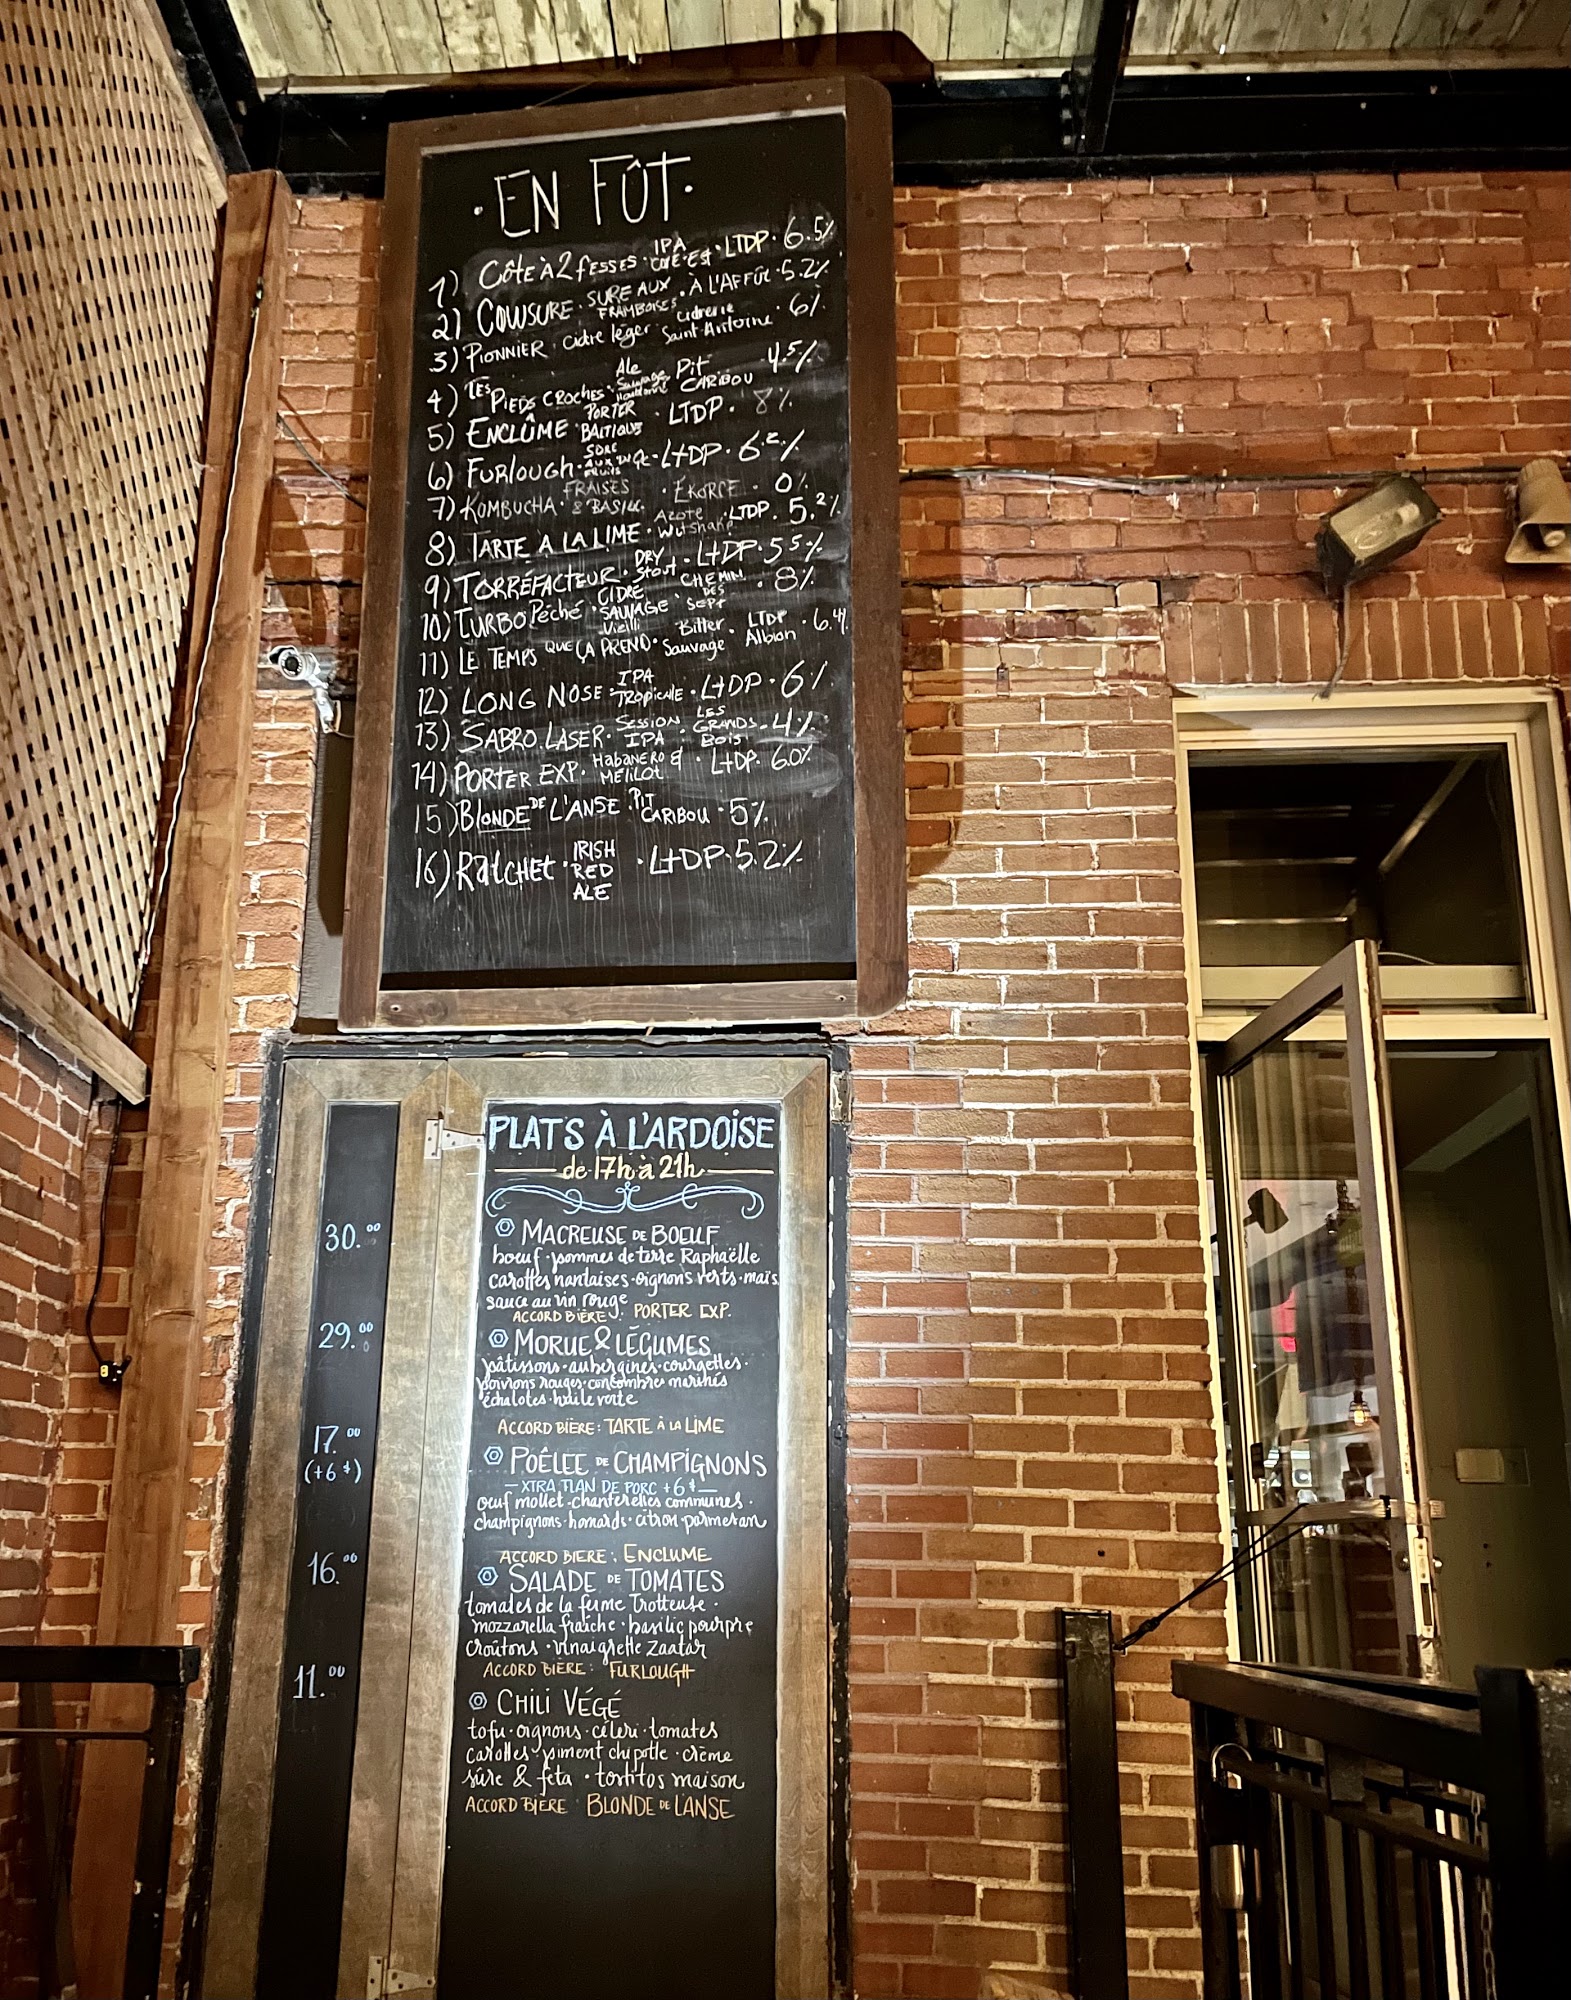 · EN FÛT ·
1) CÔTE À 2 FESSES · IPA CÔTE-EST · LTDP · 6.5%
2) COWSURE · SURE AUX FRAMBOISES · À L'AFFÛT · 5.2%
3) PIONNIER · Cidre léger · cidrerie Saint-Antoine · 6%
4) LES PIEDS CROCHES · Ale Sauvage Houblonné Pit CARIBOU 4.5%
5) ENCLÛME · PORTER BALTIQUE · LTDP · 8%
6) FURLOUGH · SURE AUX FRUITS · LTDP · 6.2%
7) KOMBUCHA · FRAISES & BASILIC · EKORCE · 0%
8) TARTE À LA LIME · Azote · LTDP · 5.2%
9) TORRÉFACTEUR · DRY Stout · LTDP · 5.5%
10) TURBO Péché · CIDRE SAUVAGE · CHEMIN DES SEPT · 8%
11) LE TEMPS QUE ÇA PREND · Vieilli Sauvage Bitter · LTDP Albion · 6.4%
12) LONG NOSE · IPA TROPICALE · LTDP · 6%
13) SABRO LASER · SESSION IPA · LES GRANDS BOIS · 4%
14) PORTER EXP · HABANERO & MÉLILOT · LTDP · 6.0%
15) BLONDE DE L'ANSE · PIT CARIBOU · 5%
16) RATCHET · IRISH RED ALE · LTDP · 5.2%
PLATS À L'ARDOISE
de 17h à 21h
30.00 MACREUSE DE BOEUF
boeuf · pommes de terre Raphaëlle
carottes nantaises · oignons verts · maïs
sauce au vin rouge
ACCORD BIÈRE: PORTER EXP.
29.00 MORUE & LÉGUMES
pâtissons · aubergines · courgettes ·
poivrons rouges · concombre marinés
échalotes · huile verte
ACCORD BIÈRE: TARTE À LA LIME
17.00 POÊLEE DE CHAMPIGNONS
(+6$) — XTRA FLAN DE PORC +6$ —
oeuf mollet · chanterelles communes ·
champignons · homards · citron · parmesan
ACCORD BIERE: ENCLUME
16.00 SALADE DE TOMATES
tomates de la ferme Trotteuse ·
mozzarella fraîche · basilic pourpre
croûtons · vinaigrette zaatar
ACCORD BIÈRE: FURLOUGH
11.00 CHILI VÉGÉ
tofu · oignons · céleri · tomates
carottes · piment chipotle · crème
sûre & feta · tortitos maison
ACCORD BIÈRE BLONDE DE L'ANSE